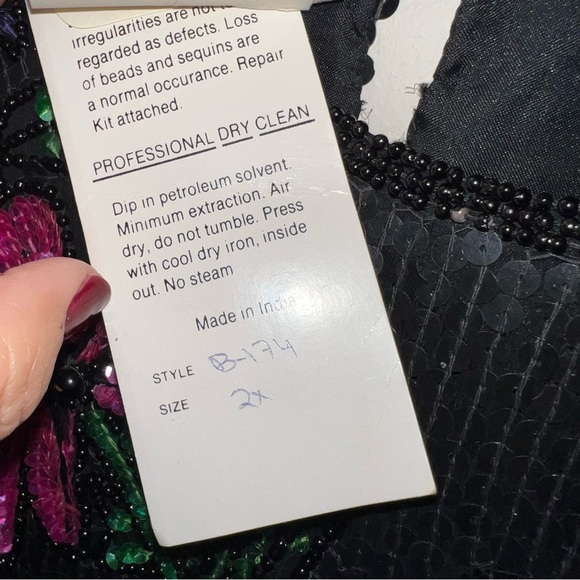 irregularities are not to
regarded as defects. Loss
of beads and sequins are
a normal occurance. Repair
Kit attached.
PROFESSIONAL DRY CLEAN
Dip in petroleum solvent.
Minimum extraction. Air
dry, do not tumble. Press
with cool dry iron, inside
out. No steam
Made in India
STYLE B-174
SIZE 2x